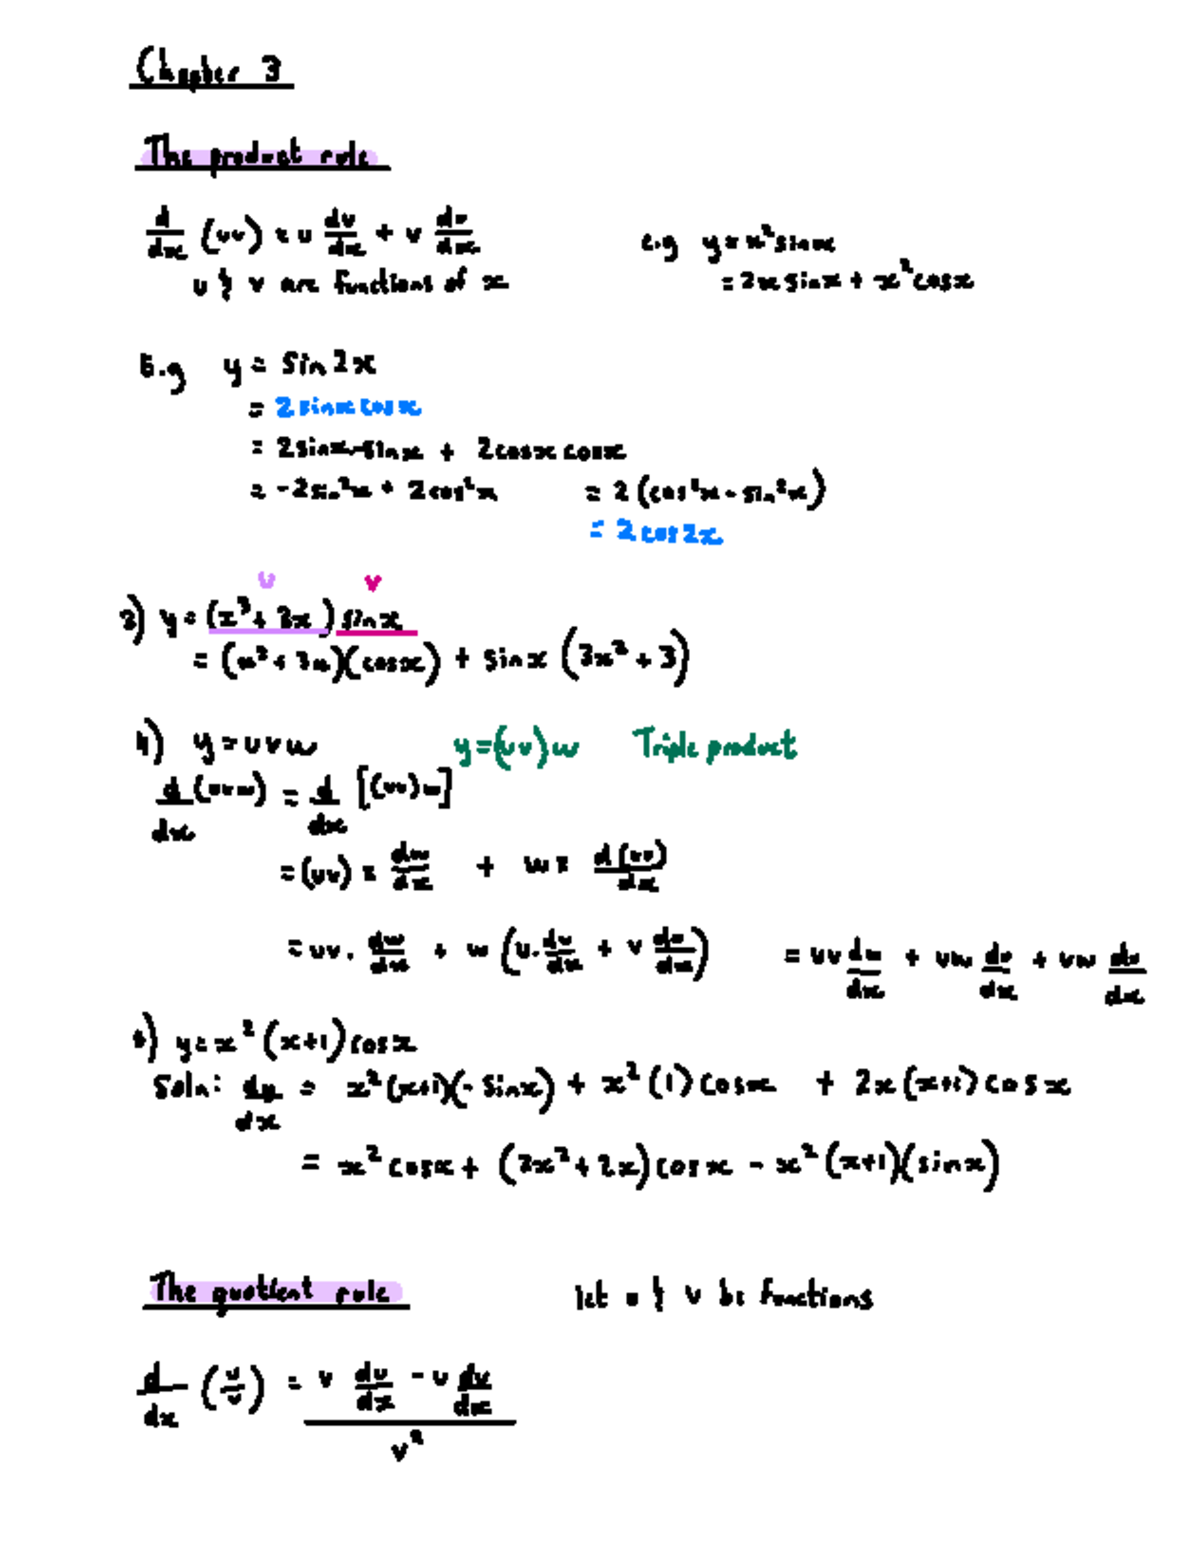 Chapter 3
The product rule
d/dx (uv) = u dv/dx + v du/dx
e.g y = x²sinx
u & v are functions of x
= 2x sinx + x²cosx
E.g y = sin2x
= 2sinxcosx
= 2sinx-sinx + 2cosxcosx
= -2sin²x + 2cos²x = 2(cos²x - sin²x)
= 2cos2x
u v
3) y = (x³ + 3x) sinx
= (x³ + 3x)(cosx) + sinx (3x² + 3)
4) y = uvw y = (uv)w Triple product
d/dx (uvw) = d/dx [(uv)w]
= (uv) × dw/dx + w × d(uv)/dx
= uv. dw/dx + w (u. dv/dx + v du/dx) = uv dw/dx + uw dv/dx + vw du/dx
y = x² (x+1) cosx
Soln: dy/dx = x²(x+1)(-sinx) + x²(1)cosx + 2x(x+1)cosx
= x²cosx + (2x² + 2x)cosx - x²(x+1)(sinx)
The quotient rule let u & v be functions
d/dx (u/v) = (v du/dx - u dv/dx)/v²